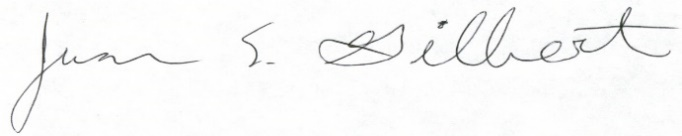 Juan E. Gilbert